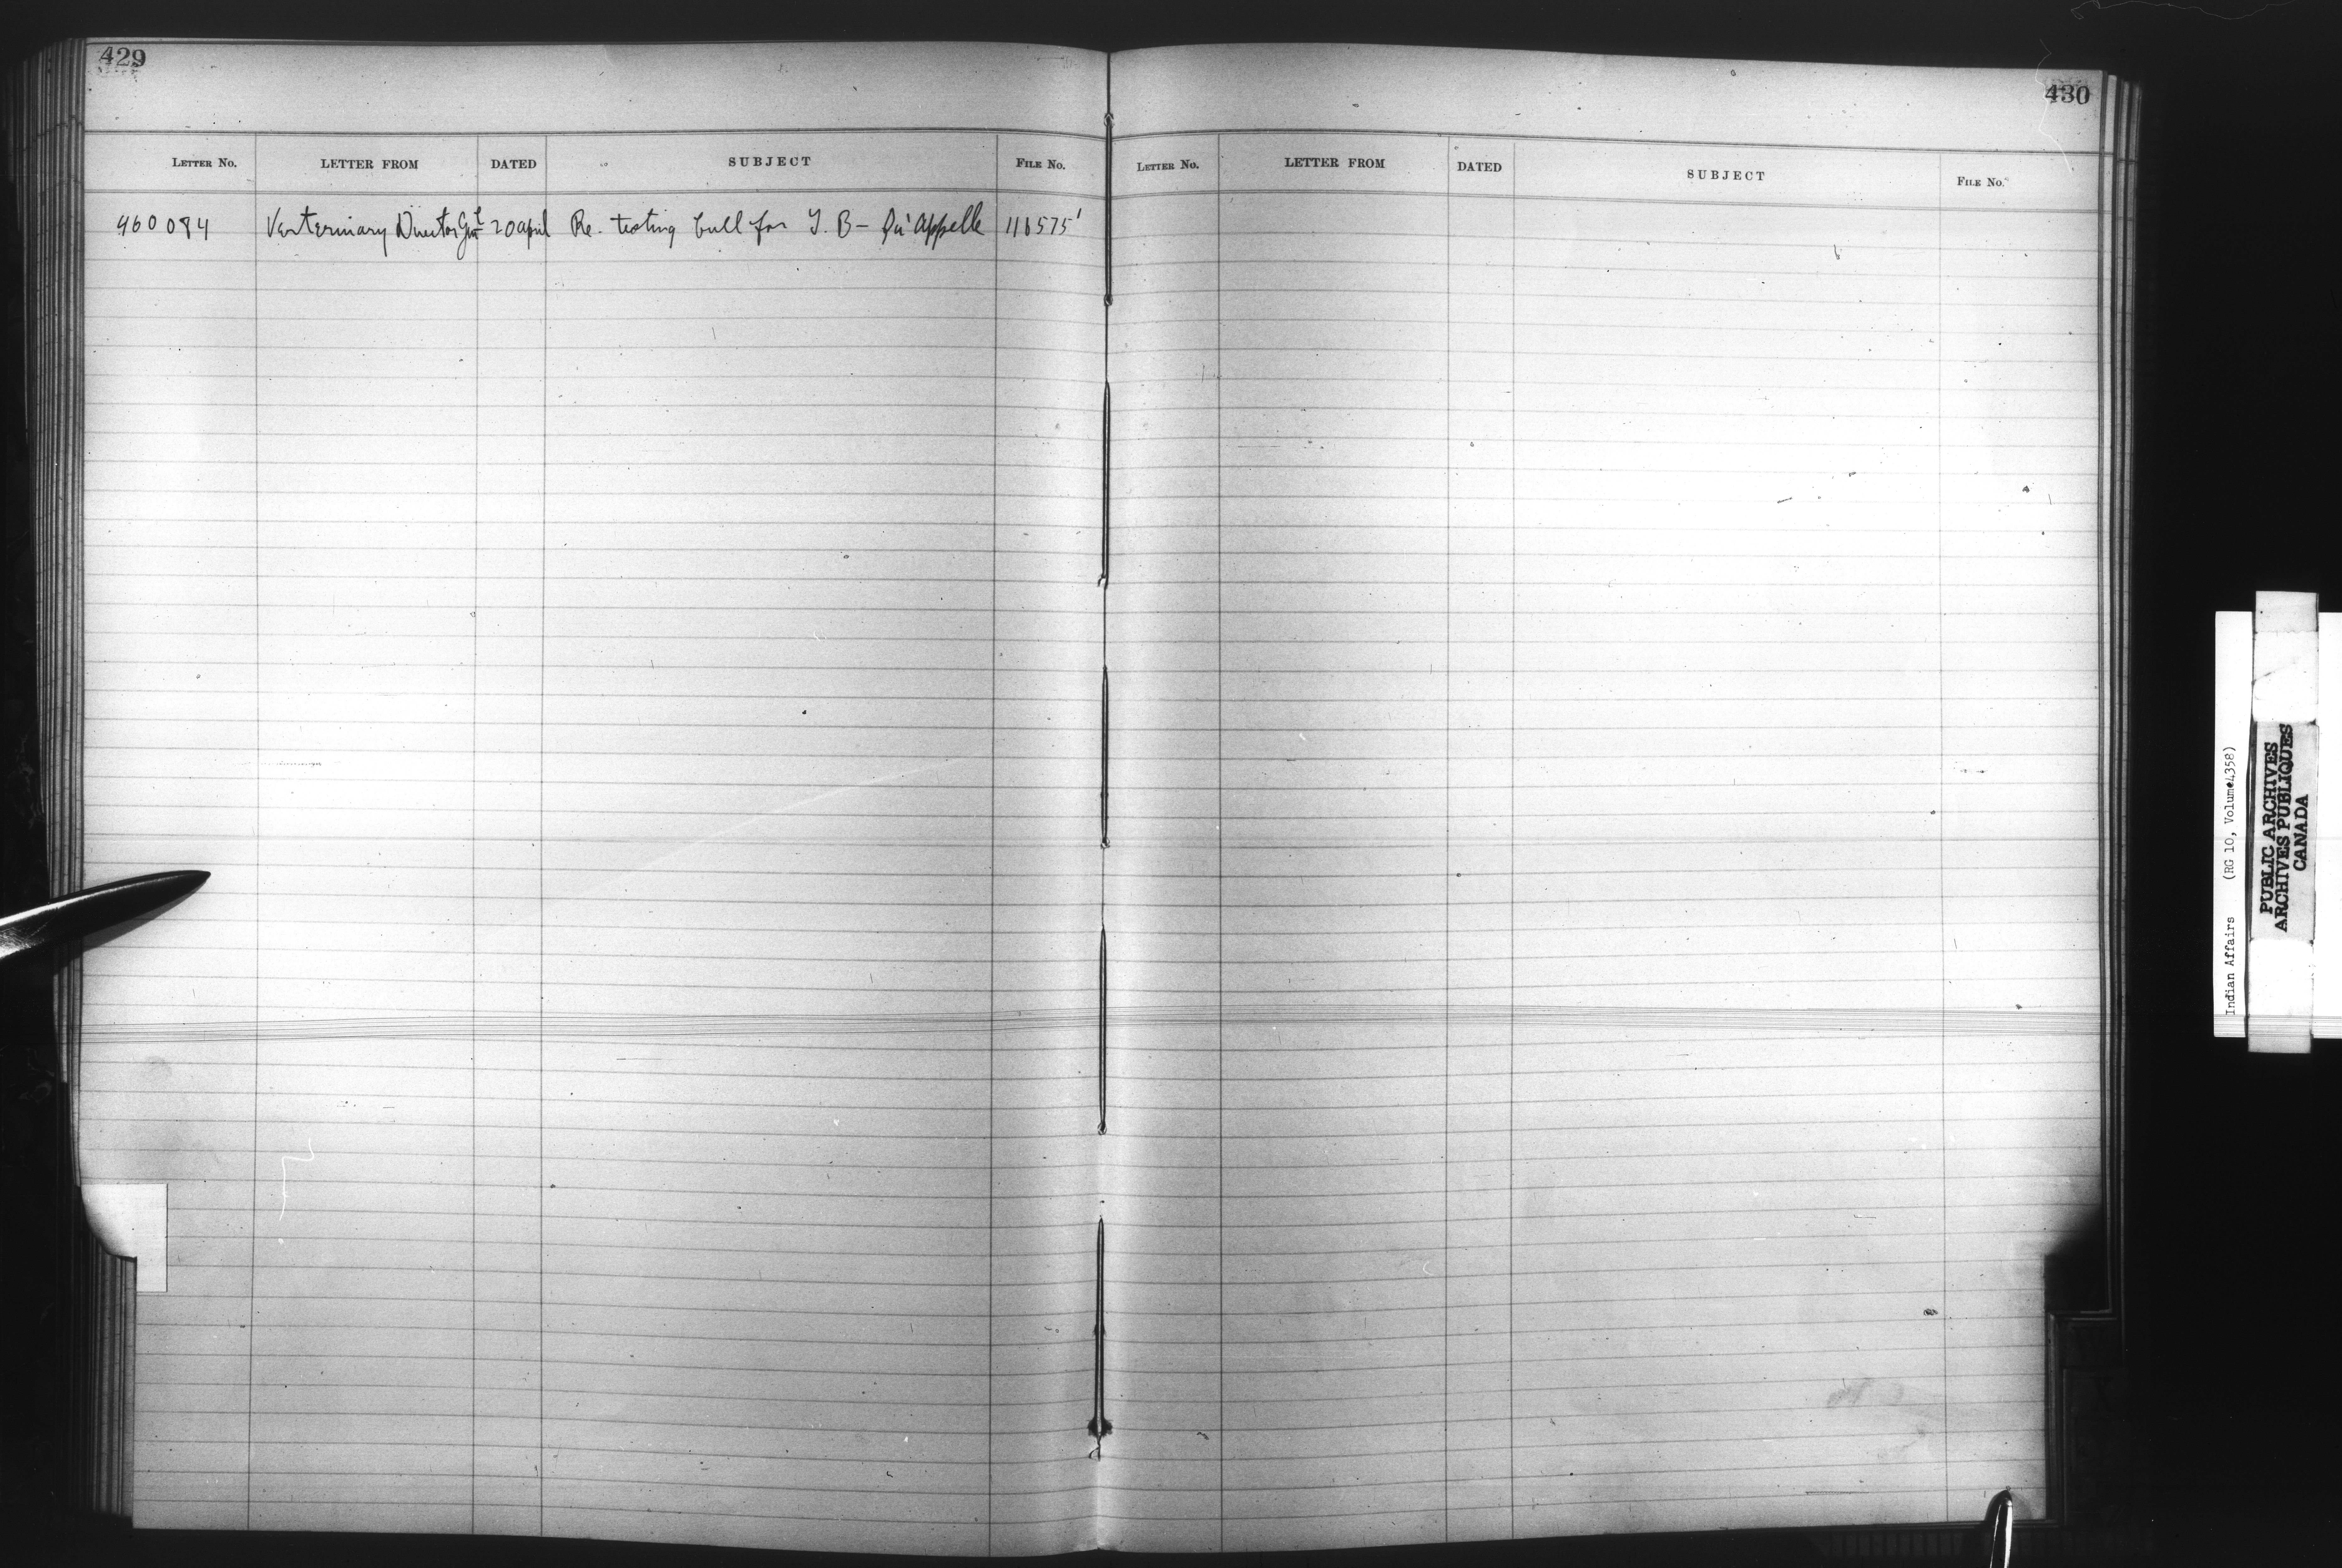 429
430
LETTER NO. LETTER FROM DATED SUBJECT FILE NO.
LETTER NO. LETTER FROM DATED SUBJECT FILE NO.
460084 Verterinary Director Genl 20 april Re. testing bull for T. B - Qu'appelle 116575'
Indian Affairs (RG 10, Volume4358)
PUBLIC ARCHIVES
ARCHIVES PUBLIQUES
CANADA